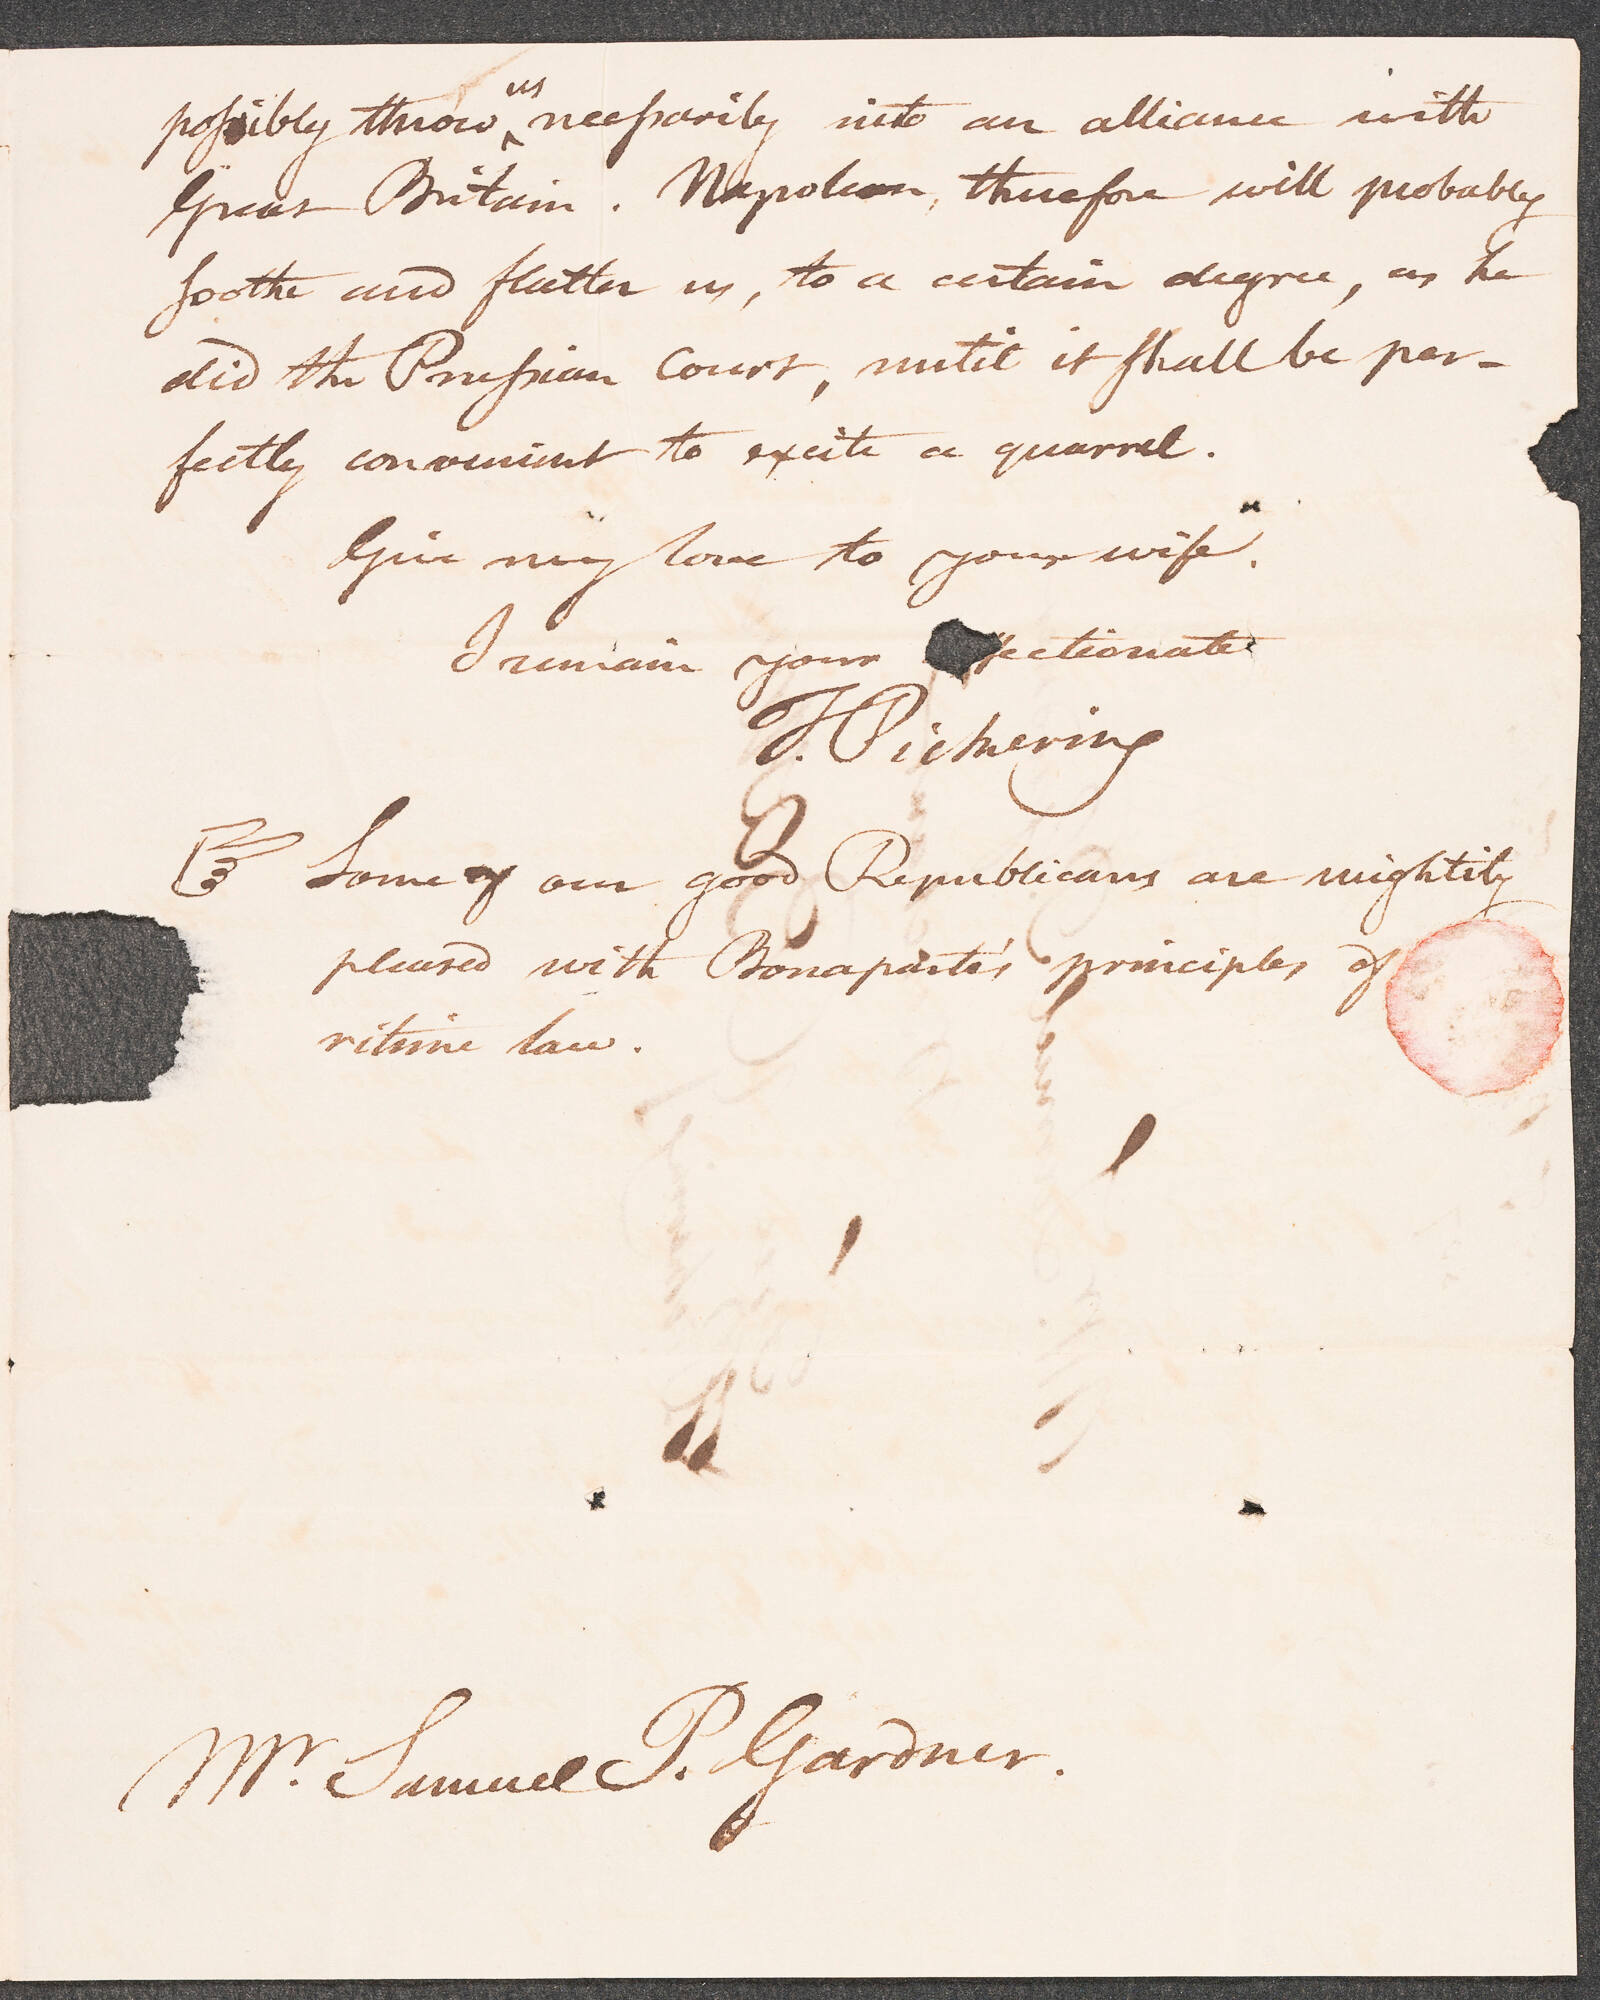 possibly throw us necessarily into an alliance with
Great Britain. Napoleon, therefore will probably
soothe and flatter us, to a certain degree, as he
did the Prussian Court, until it shall be per-
fectly convenient to excite a quarrel.
Give my love to your wife.
I remain your ffectionate
T. Pickering
☞ Some of our good Republicans are mightily
pleased with Bonaparte's principles of
ritime law.
Mr. Samuel P. Gardner.